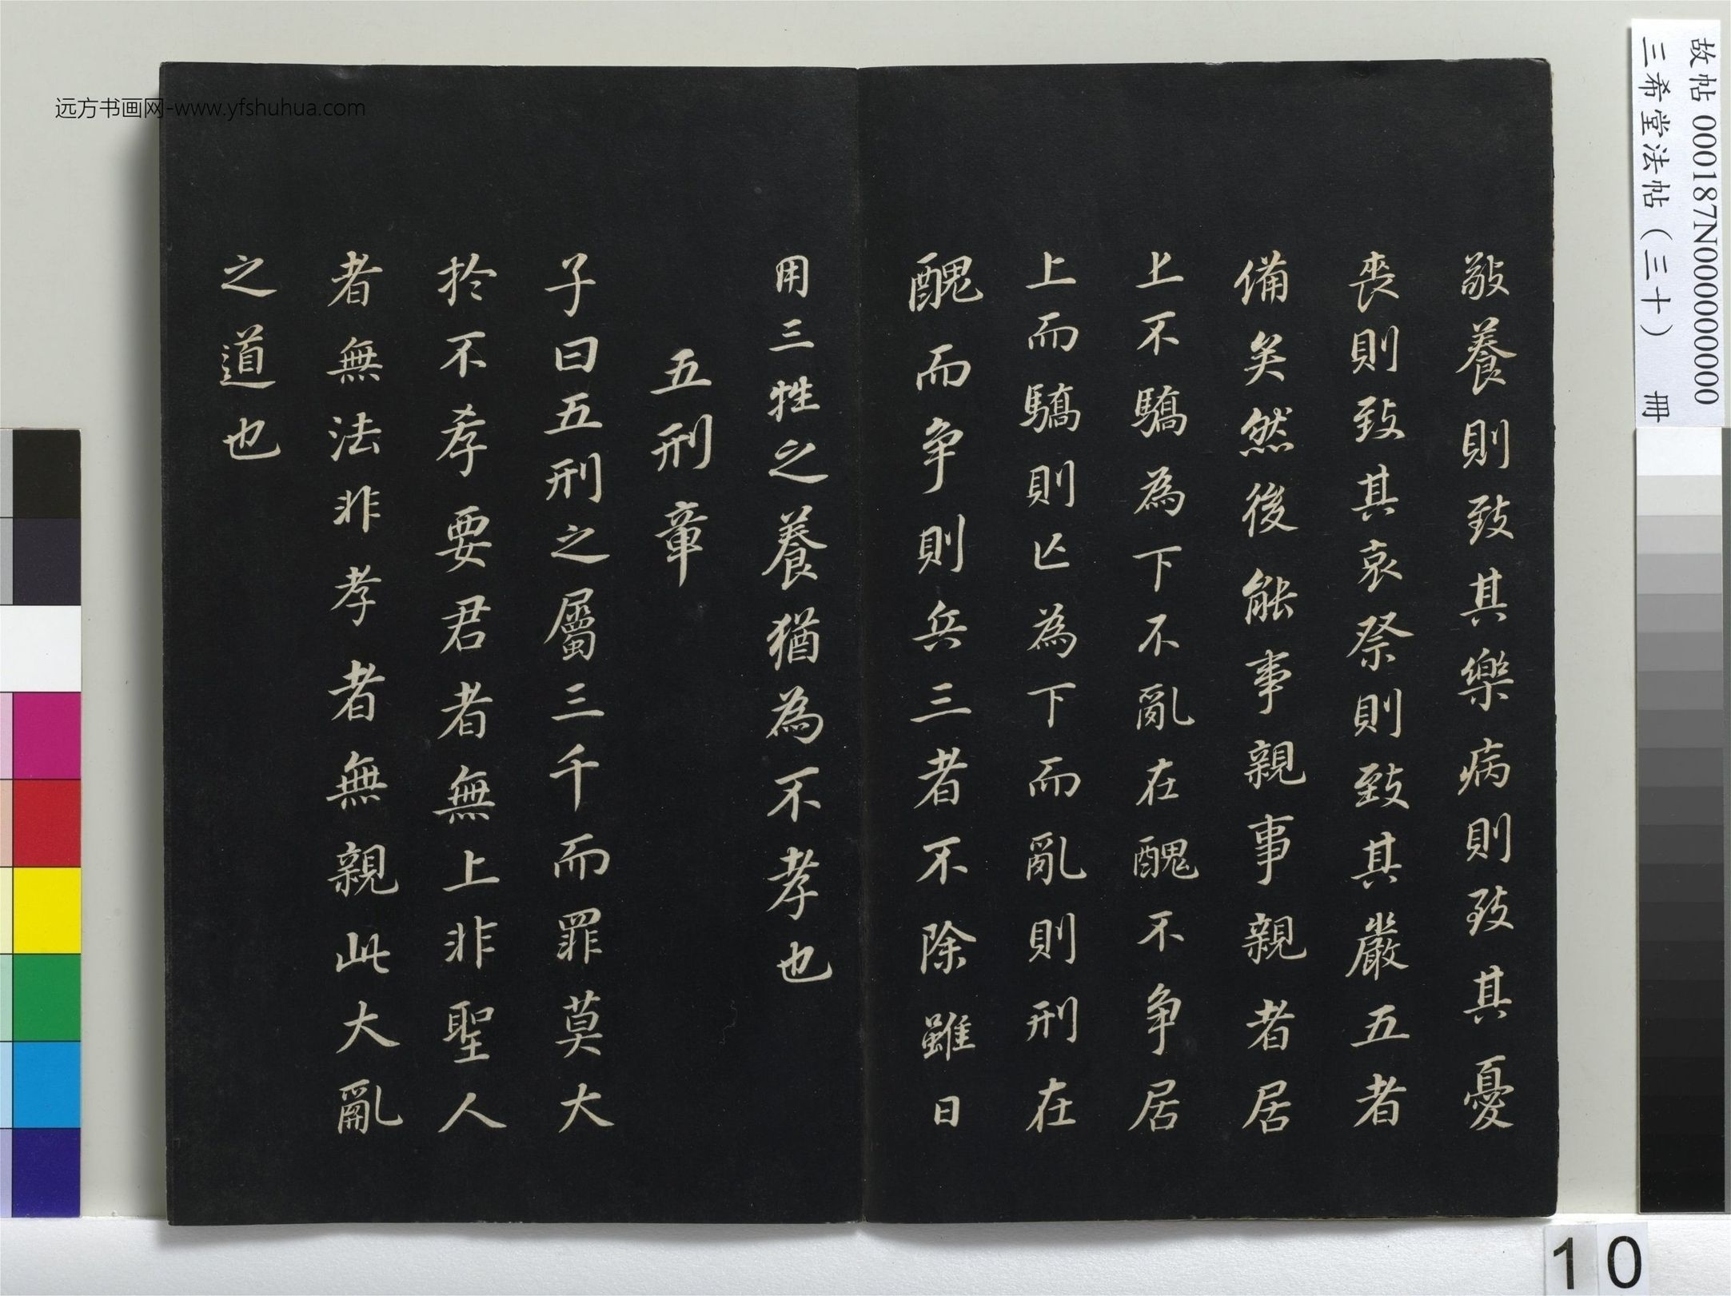 故帖 000187N000000000
三希堂法帖（三十） 冊
敬養則致其樂病則致其憂
喪則致其哀祭則致其嚴五者
備矣然後能事親事親者居
上不驕為下不亂在醜不爭居
上而驕則亡為下而亂則刑在
醜而爭則兵三者不除雖日
用三牲之養猶為不孝也
五刑章
子曰五刑之屬三千而罪莫大
於不孝要君者無上非聖人
者無法非孝者無親此大亂
之道也
远方书画网-www.yfshuhua.com
10